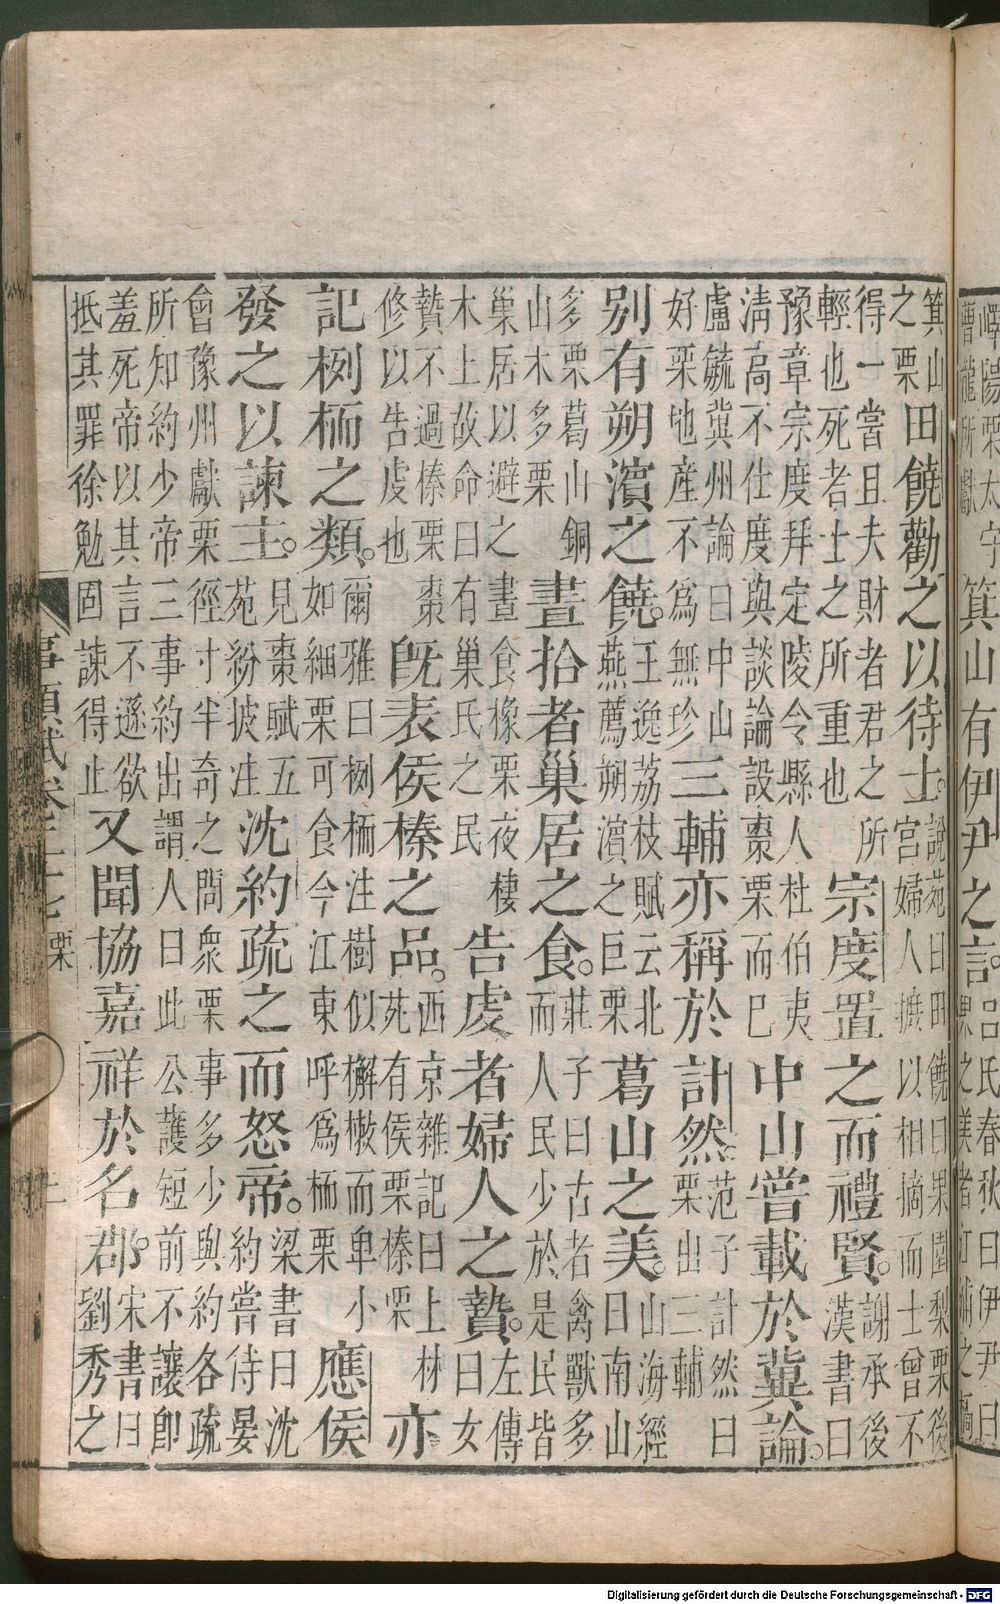 嶧陽栗太守曹龍所獻箕山有伊尹之言。呂氏春秋曰伊尹曰果之美者江浦之橘
箕山之栗田饒勸之以待士。說苑曰田饒曰果園梨栗後宮婦人摭以相擿而士曾不
得一當且夫財者君之所輕也死者士之所重也宗度置之而禮賢。謝承後漢書曰
豫章宗度拜定陵令縣人杜伯夷清高不仕度與談論設棗栗而已中山嘗載於冀論。
盧毓冀州論曰中山好栗地產不爲無珍三輔亦稱於計然范子計然曰栗出三輔
別有朔濱之饒。王逸荔枝賦云北燕薦朔濱之巨栗葛山之美。山海經曰南山
多栗葛山銅山木多栗晝拾者巢居之食。莊子曰古者禽獸多而人民少於是民皆
巢居以避之晝食橡栗夜棲木上故命曰有巢氏之民告虔者婦人之贄。左傳曰女
贄不過榛栗棗修以告虔也既表侯榛之品。西京雜記曰上林苑有侯栗榛栗亦
記栵栭之類。爾雅曰栵栭注樹似槲樕而卑小如細栗可食今江東呼爲栭栗應侯
發之以諫主。見棗賦五苑紛披注沈約疏之而怒帝。梁書曰沈約嘗待晏
會豫州獻栗徑寸半奇之問衆栗事多少與約各疏所知約少帝三事約出謂人曰此公護短前不讓即
羞死帝以其言不遜欲抵其罪徐勉固諫得止又聞協嘉祥於名郡。宋書曰劉秀之
事類賦卷二十七 栗
Digitalisierung gefördert durch die Deutsche Forschungsgemeinschaft - DFG